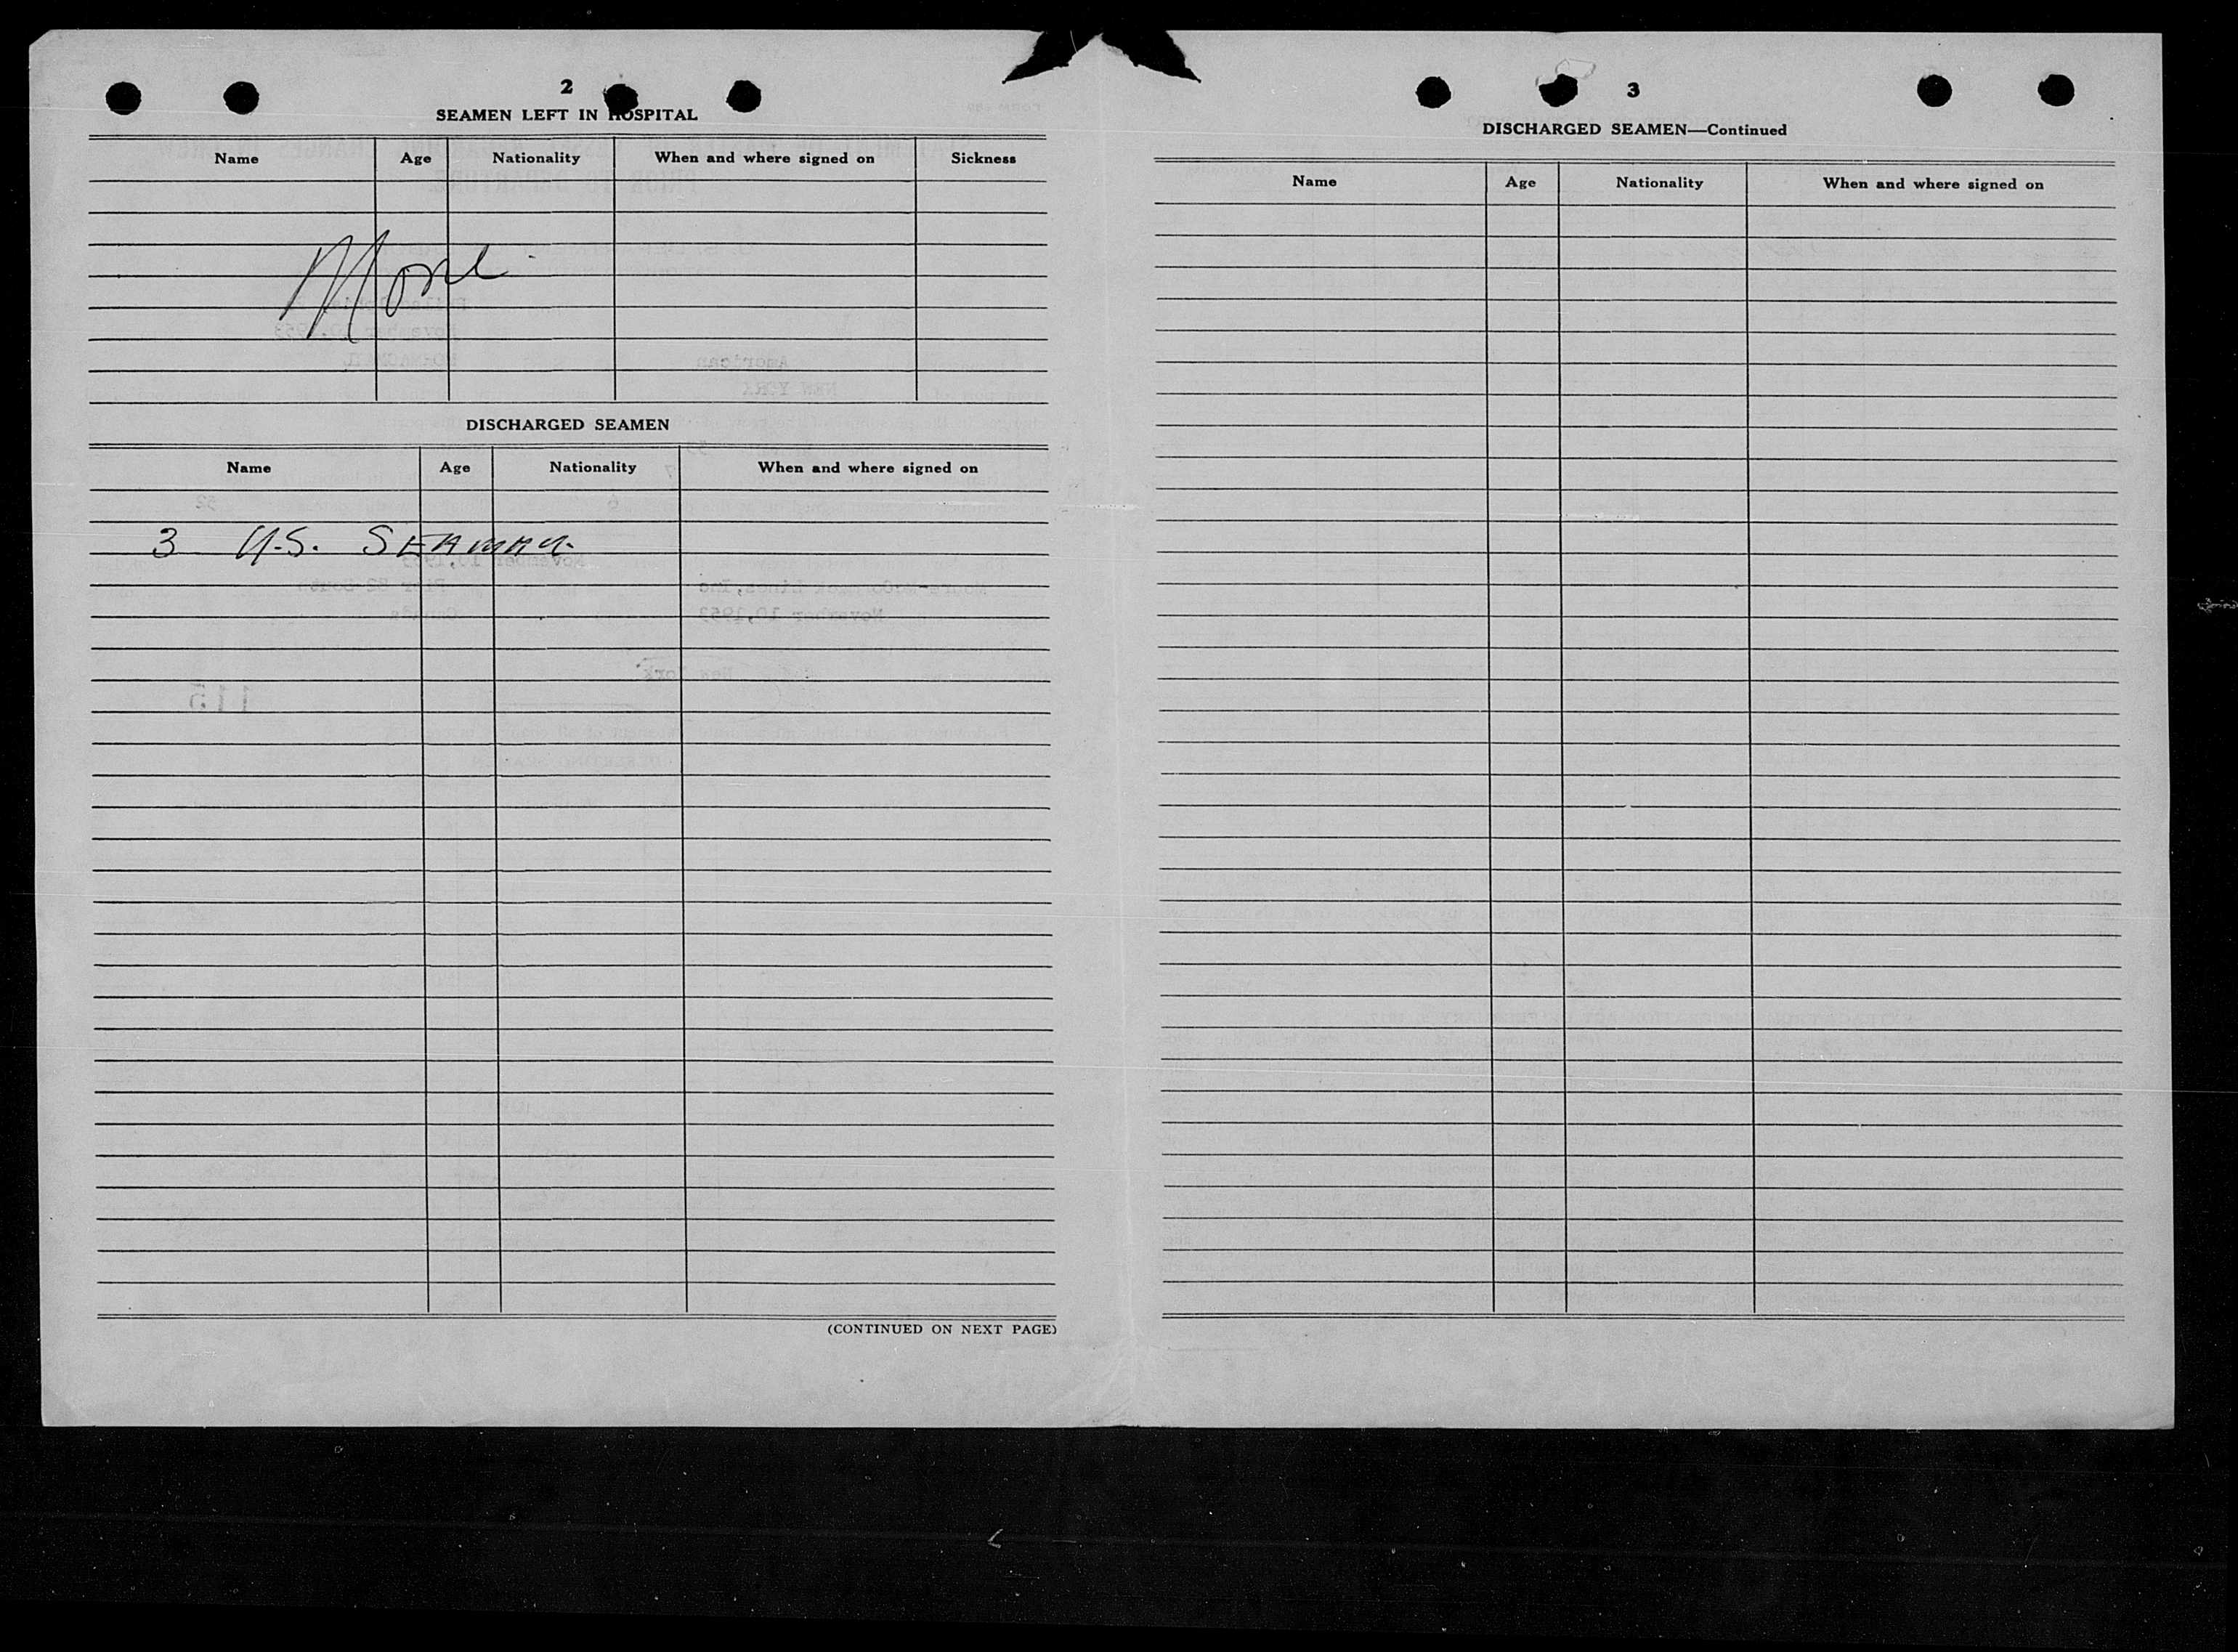 2
SEAMEN LEFT IN HOSPITAL
Name Age Nationality When and where signed on Sickness
None
DISCHARGED SEAMEN
Name Age Nationality When and where signed on
3 U.S. SEAMAN
(CONTINUED ON NEXT PAGE)
3
DISCHARGED SEAMEN—Continued
Name Age Nationality When and where signed on